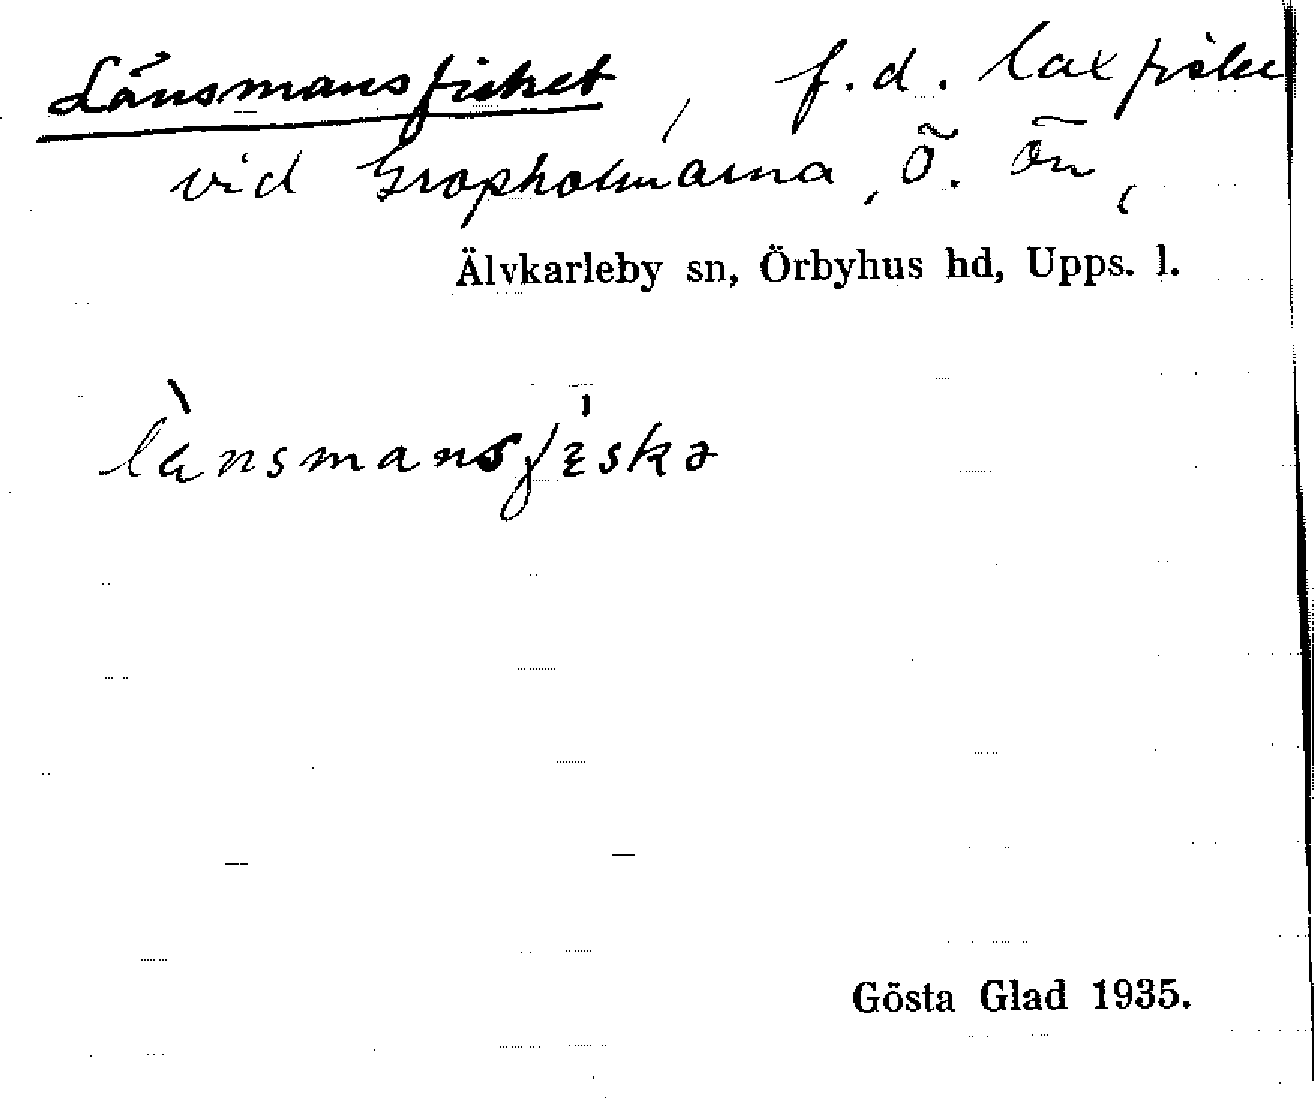 Länsmansfisket, f.d. laxfiske
vid Gropholmarna, Ö. Ön,
Älvkarleby sn, Örbyhus hd, Upps. l.
Gösta Glad 1935.